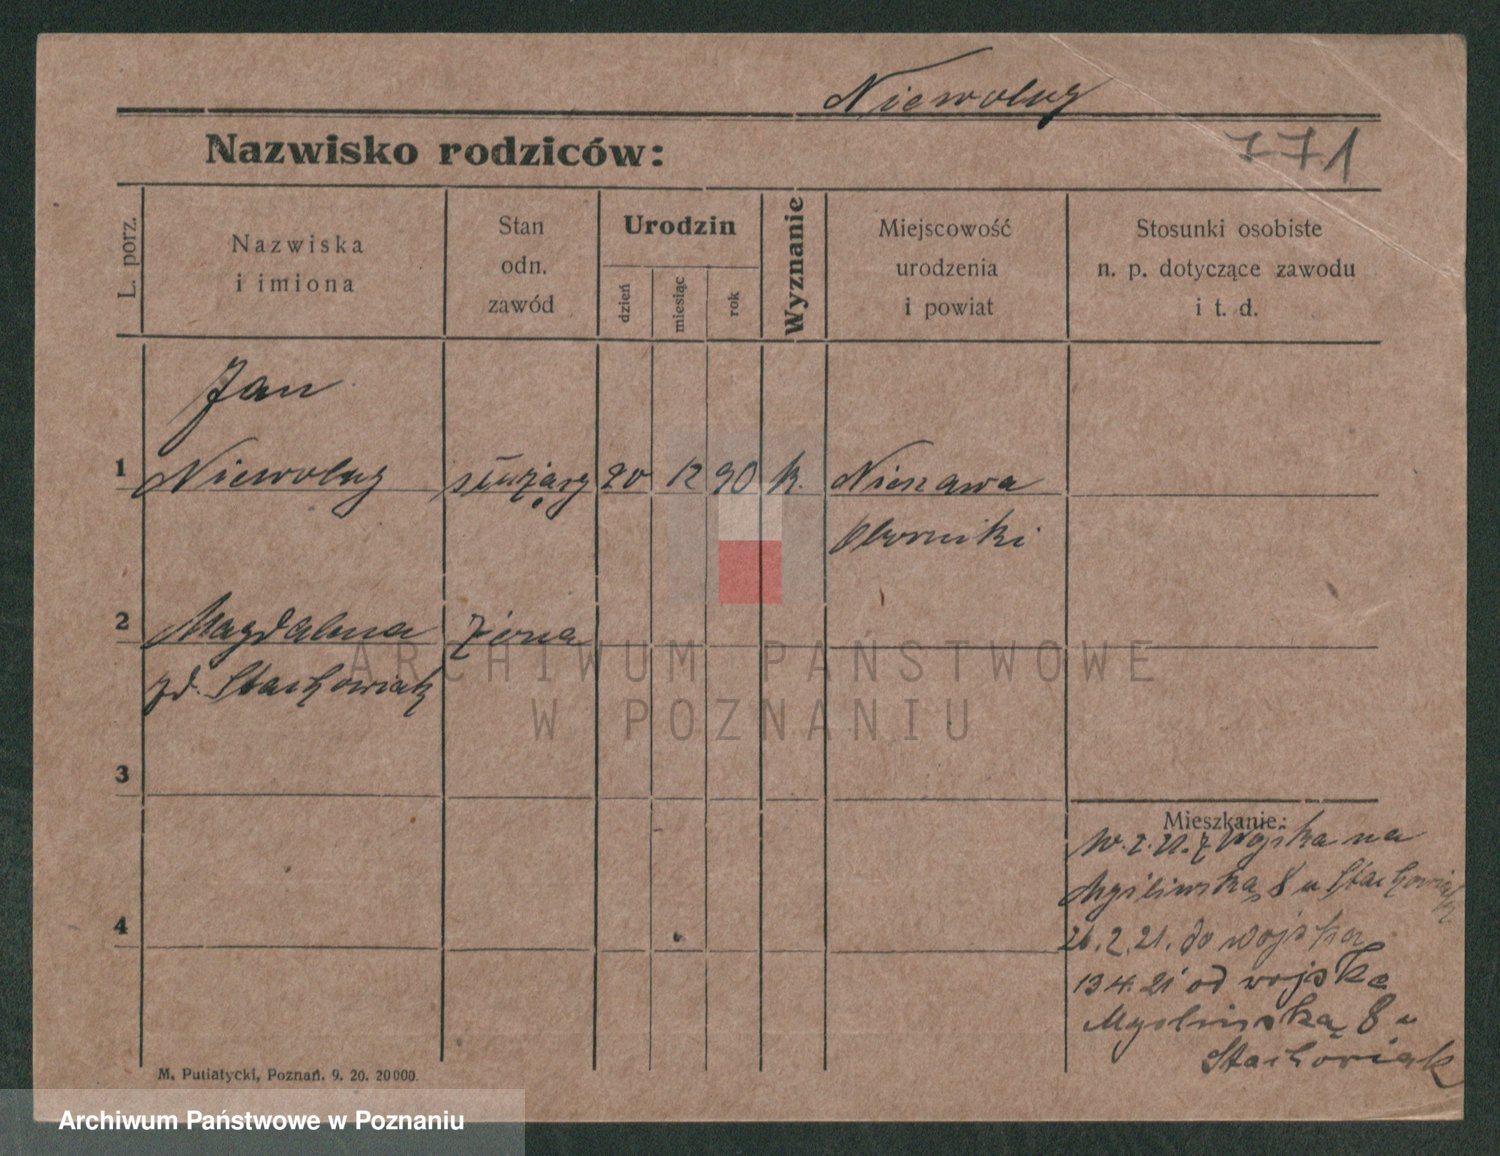 Niewolny
Nazwisko rodziców:
771
L. porz.
Nazwiska
i imiona
Stan
odn.
zawód
Urodzin
dzień
miesiąc
rok
Wyznanie
Miejscowość
urodzenia
i powiat
Stosunki osobiste
n. p. dotyczące zawodu
i t. d.
Jan
1 Niewolny służący 20 12 90 k. Nieszawa
Oborniki
2 Magdalena żona
zd. Stachowiak
ARCHIWUM PAŃSTWOWE
W POZNANIU
3
Mieszkanie:
z wojska na
8 u Stachowiak
4
26.2.21. do wojska
13 4. 21 od wojska
8 u
Stachowiak
M. Putiatycki, Poznań. 9. 20. 20000.
Archiwum Państwowe w Poznaniu